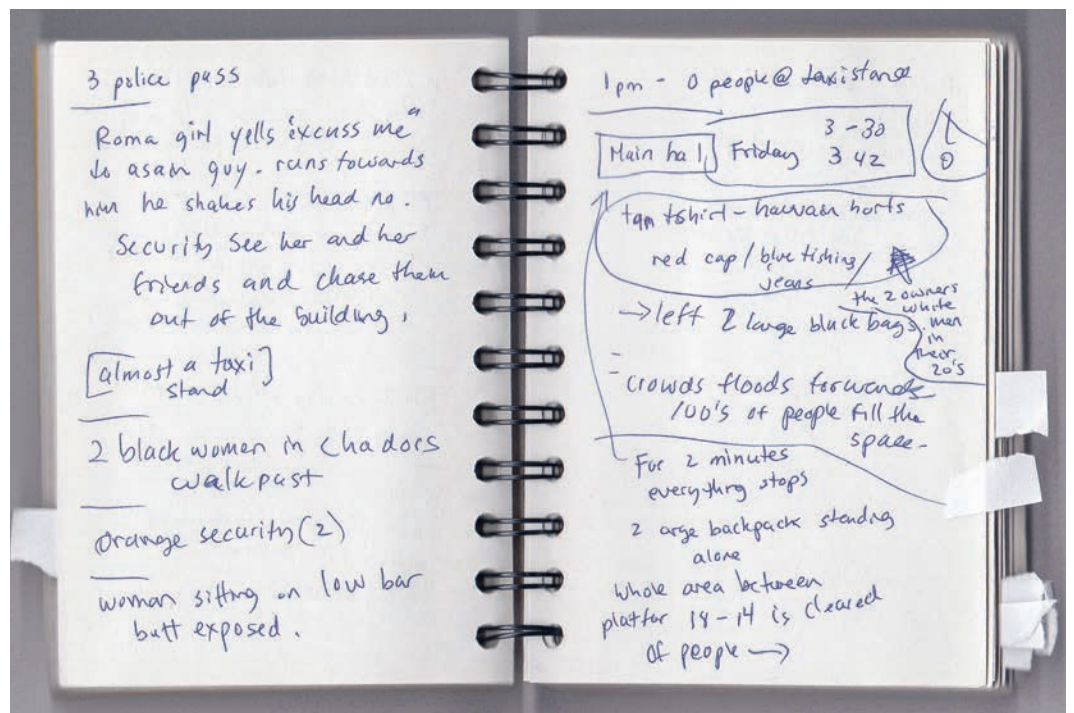 3 police pass
Roma girl yells "excuss me"
to asain guy. runs towards
him he shakes his head no.
Security See her and her
friends and chase them
out of the building.
[almost a taxi]
stand
2 black women in Chadors
walk past
orange security (2)
woman sitting on low bar
butt exposed.
1 pm - 0 people @ taxistand
3 - 30
Main hall Friday 3 42
0
tan tshirt - hawain horts
red cap / blue fishing /
jeans
the 2 owners
white
men
in
their
20's
→ left 2 large black bags.
crowds floods forwards
100's of people fill the
space -
For 2 minutes
everything stops
2 arge backpack standing
alone
whole area between
platfor 18 - 14 is cleared
of people →